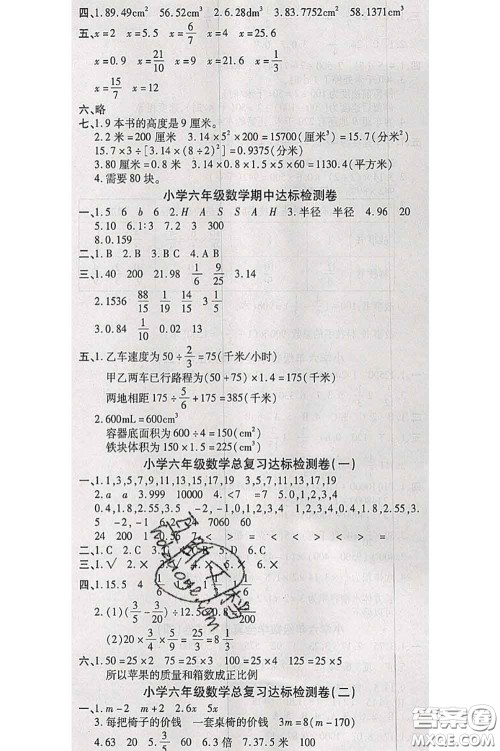 四、1.89.49cm² 56.52cm³ 2.6.28dm 3.83.7752cm 58.1371cm³
五、x=2 x=5.5 x=6/7 x=4 x=3
x=0.9 x=21/10 x=9 x=21.6 x=1/3
x=15/7 x=12
六、略
七、1.9本书的高度是9厘米。
2.2米=200厘米 3.14×5²×200=15700(厘米³)=15.7(分米³)
15.7×3÷[3.14×(8÷2)²]=0.9375(分米)
3.80厘米=0.8米 3.14×1.5×5×60=1130.4(平方米)
4.需要80块。
小学六年级数学期中达标检测卷
一、1.5 6 b 6 2.H A S S A H 3.半径 半径 4.96 20
5.10 6.1:3 7.2 3 300
8.0.159
二、1.B 2.B 3.B C 4.A B
三、1.40 200 21.98 1/6 9/25 3.14
2.1536 88/15 14/19 3 1/15 40
3.0.84 1/10 0.02 13
五、1.乙车速度为50÷2/3=75(千米/小时)
甲乙两车已行路程为(50+75)×1.4=175(千米)
两地相距175÷5/6+175=385(千米)
2.600mL=600cm³
容器底面积为600÷4=150(cm²)
铁块体积为150×1.5=225(cm³)
小学六年级数学总复习达标检测卷(一)
一、1.1,3,5,7,9,11,13,15,17,19 3,5,7,11,13,17,19
2.a a 3.999 10000 4.<7 =7 5.0,1,2,3,4
0.4,1.8,2.55,3.5 -2,-1 0,1,2,3,4 0.4,1,1.8,2,2.55,3,
3.5 -2,-1 6.2 24 7060 60
24 200 20 7.< < > > = = < =
二、1.C 2.C 3. B 5.D 6.C
三、1.√ 2.× 3. 6.×
四、1.15.5 4 1/6
2.(1)( ÷12.5 200
(2)20×3/4×5/9÷3/25=8 1/3
六、1.50=25×2 75=25×3 100=25×4 125=25×5
所以苹果的质量和箱数成正比例
小学六年级数学总复习达标检测卷(二)
一、1.m-2 m+2 2.x
3.每把椅子的价钱 一套桌椅的价钱 3m=8(m-170)
4.63 20 5. 60 6.3倍 7.35% 米 100
答案圈
MXQE.COM